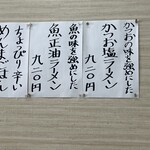 かつおの味を強めにした
かつお塩ラーメン
九二〇円
魚の味を強めにした
魚正油ラーメン
九二〇円
ちょっぴり辛い